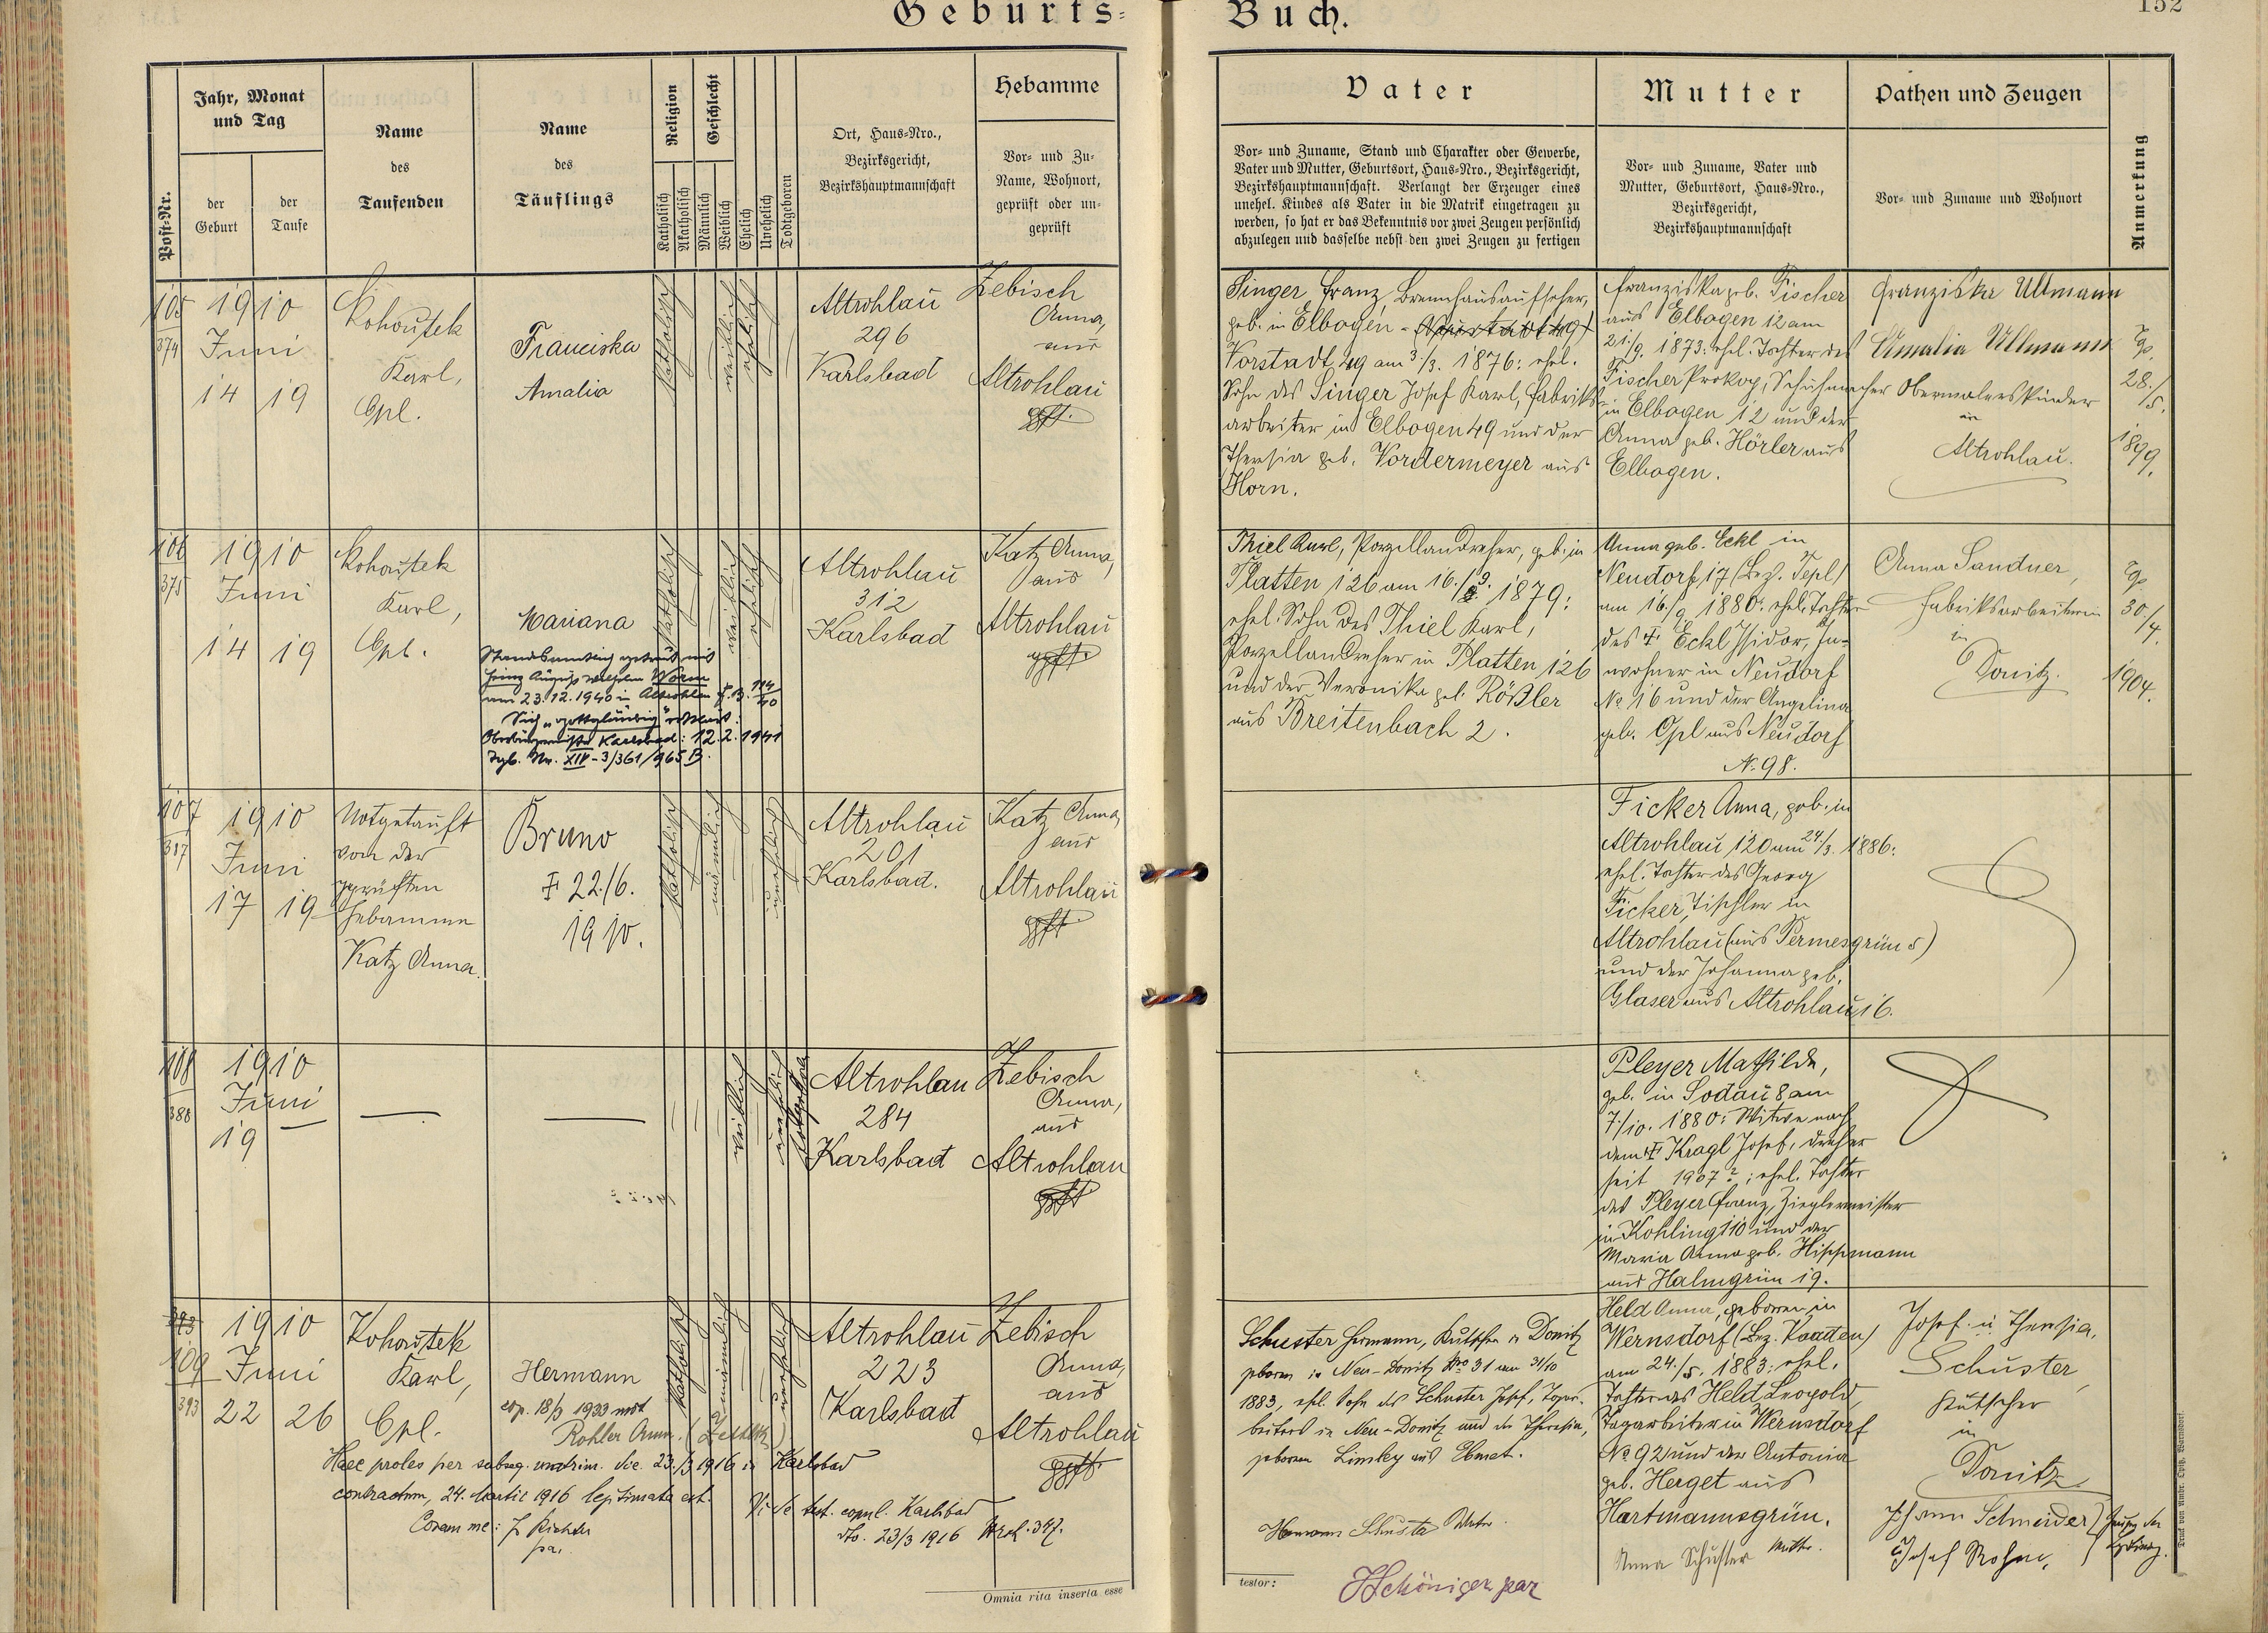 Geburts-
Buch.
152
Post-Nr.
Jahr, Monat
und Tag
der
Geburt
der
Taufe
Name
des
Taufenden
Name
des
Täuflings
Religion
Katholisch
Akatholisch
Geschlecht
Männlich
Weiblich
Ehelich
Unehelich
Todtgeboren
Ort, Haus-Nro.,
Bezirksgericht,
Bezirkshauptmannschaft
Hebamme
Vor- und Zu-
Name, Wohnort,
geprüft oder un-
geprüft
Vater
Vor- und Zuname, Stand und Charakter oder Gewerbe,
Vater und Mutter, Geburtsort, Haus-Nro., Bezirksgericht,
Bezirkshauptmannschaft. Verlangt der Erzeuger eines
unehel. Kindes als Vater in die Matrik eingetragen zu
werden, so hat er das Bekenntnis vor zwei Zeugen persönlich
abzulegen und dasselbe nebst den zwei Zeugen zu fertigen
Mutter
Vor- und Zuname, Vater und
Mutter, Geburtsort, Haus-Nro.,
Bezirksgericht,
Bezirkshauptmannschaft
Pathen und Zeugen
Vor- und Zuname und Wohnort
Anmerkung
105
374
1910
Juni
14 19
Kohoutek
Karl,
Cpl.
Franciska
Amalia
katholisch
weiblich
ehelich
Altrohlau
296
Karlsbad
Zebisch
Anna,
aus
Altrohlau
gpft.
Singer Franz, Brennhausaufseher,
geb. in Elbogen -
Vorstadt 49 am 3./3. 1876: ehel.
Sohn des Singer Josef Karl, Fabriks-
arbeiter in Elbogen 49 und der
Theresia geb. Vordermeyer aus
Horn.
Franziska geb. Fischer
aus Elbogen 12 am
21./9. 1873: ehel. Tochter des
Fischer Prokop, Schuhmacher
in Elbogen 12 und der
Anna geb. Hörler aus
Elbogen.
Franziska Ullmann
Amalia Ullmann
Obermalerskinder
in
Altrohlau.
Cp.
28./5.
1899.
106
375
1910
Juni
14 19
Kohoutek
Karl,
Cpl.
Mariana
Standesamtlich getraut mit
Heinz August Wilhelm Worm
am 23.12.1940 in Altrohlau F.B. 114/40
Sich "gottgläubig" erklärt:
Oberbürgermeister Karlsbad: 12.2.1941
Tgb. Nr. XIV-3/361/965 B.
katholisch
weiblich
ehelich
Altrohlau
312
Karlsbad
Katz Anna,
aus
Altrohlau
gpft.
Thiel Karl, Porzellandreher, geb. in
Platten 126 am 16./9. 1879:
ehel. Sohn des Thiel Karl,
Porzellandreher in Platten 126
und der Veronika geb. Rößler
aus Breitenbach 2.
Anna geb. Eckl in
Neudorf 17 (Bez. Tepl)
am 16./9 1880: ehel. Tochter
des † Eckl Isidor, In-
wohner in Neudorf
No 16 und der Angelina
geb. Opl aus Neudorf
N. 98.
Anna Sandner,
Fabriksarbeiterin
in
Donitz.
Cp.
30/4.
1904.
107
387
1910
Juni
17 19
Notgetauft
von der
geprüften
Hebamme
Katz Anna.
Bruno
† 22./6.
1910.
katholisch
männlich
unehelich
Altrohlau
201
Karlsbad.
Katz Anna,
aus
Altrohlau
gpft
Ficker Anna, geb. in
Altrohlau 120 am 24./3. 1886:
ehel. Tochter des Georg
Ficker, Tischler in
Altrohlau (aus Permesgrün 5)
und der Johanna geb.
Glaser aus Altrohlau 16.
108
388
1910
Juni
19 —
—
—
weiblich
unehelich
totgeboren
Altrohlau
284
Karlsbad
Zebisch
Anna,
aus
Altrohlau
gpft
Pleyer Mathilde,
geb. in Sodau 8 am
7./10. 1880: Witwe nach
dem † Kragl Josef, Dreher
seit 1907?; ehel. Tochter
des Pleyer Franz, Zieglermeister
in Kohling 110 und der
Maria Anna geb. Hippmann
aus Halmgrün 19.
393
109
393
1910
Juni
22 26
Kohoutek
Karl,
Cpl.
Hermann
cop. 18/3 1933 mit
Rohler Anna. (Zettlitz)
katholisch
männlich
unehelich
Altrohlau
223
Karlsbad
Zebisch
Anna,
aus
Altrohlau
gpft.
Haec proles per subseq. matrim. die 23./3 1916 in Karlsbad
contractum, 24. Martii 1916 legitimata est.
Coram me: J. Richter
par.
Vide test. copul. Karlsbad
dto. 23/3 1916 Nrch. 347.
Schuster Hermann, Kutscher in Donitz
geboren in Neu-Donitz Nro 31 am 31/10
1883, ehel. Sohn des Schuster Josef, Tagar-
beiters in Neu-Donitz und der Theresia,
geborene Limley aus Ebmet.
Hermann Schuster Vater.
Held Anna, geboren in
Wernsdorf (Bez. Kaaden)
am 24./5. 1883: ehel.
Tochter des Held Leopold,
Tagarbeiter in Wernsdorf
No 92 und der Antonia
geb. Herget aus
Hartmannsgrün.
Anna Schuster Mutter.
Josef u Theresia,
Schuster,
Kutscher
in
Donitz.
Johann Schneider
Josef Rohm,
Zeugen der
Omnia rita inserta esse
testor:
Druck von Ambr. Opitz, Warnsdorf.